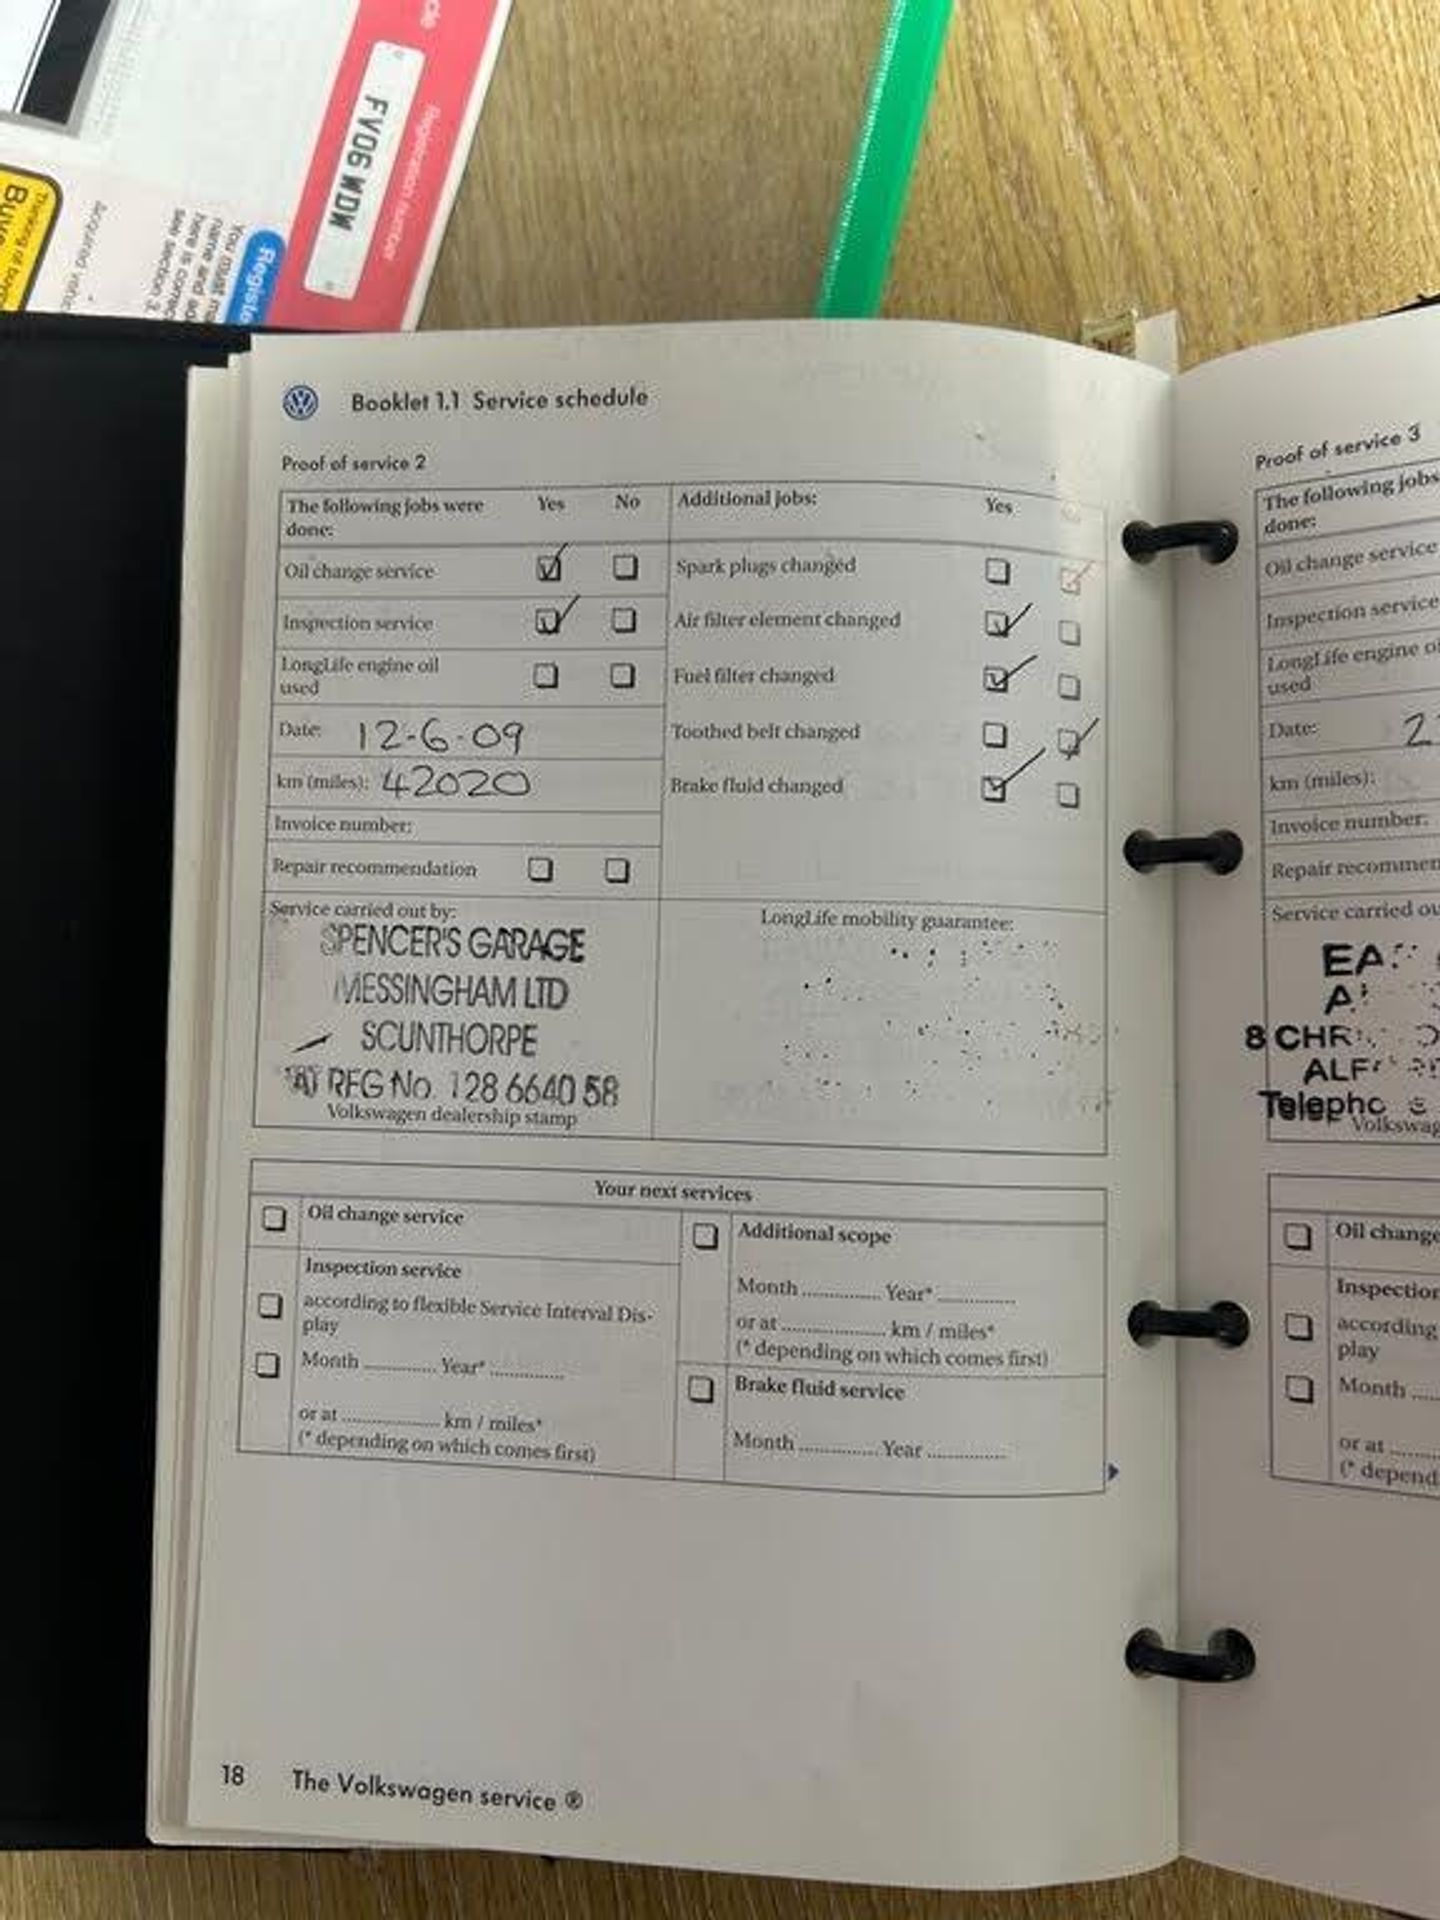 Registration number
FV06WDW
Registe
You must m
name and ad
here is correc
see section 7.
Acquired vehic
Thinking of buyin
Booklet 1.1 Service schedule
Proof of service 2
The following jobs were done: Yes No
Additional jobs: Yes No
Oil change service
Spark plugs changed
Inspection service
Air filter element changed
LongLife engine oil used
Fuel filter changed
Date: 12-6-09
Toothed belt changed
km (miles): 42020
Brake fluid changed
Invoice number:
Repair recommendation
Service carried out by:
SPENCER'S GARAGE
MESSINGHAM LTD
SCUNTHORPE
VAT REG No. 128 6640 58
Volkswagen dealership stamp
LongLife mobility guarantee:
Your next services
Oil change service
Inspection service
according to flexible Service Interval Dis-
play
Month ............... Year* ...............
or at .................... km / miles*
(* depending on which comes first)
Additional scope
Month ............... Year* ...............
or at .................... km / miles*
(* depending on which comes first)
Brake fluid service
Month ............... Year ...............
18 The Volkswagen service ®
Proof of service 3
The following jobs
done:
Oil change service
Inspection service
LongLife engine oi
used
Date: 2
km (miles):
Invoice number:
Repair recommen
Service carried ou
8 CHR
ALF
Telepho
Volkswag
Oil change
Inspection
according
play
Month ....
or at ......
(* depend